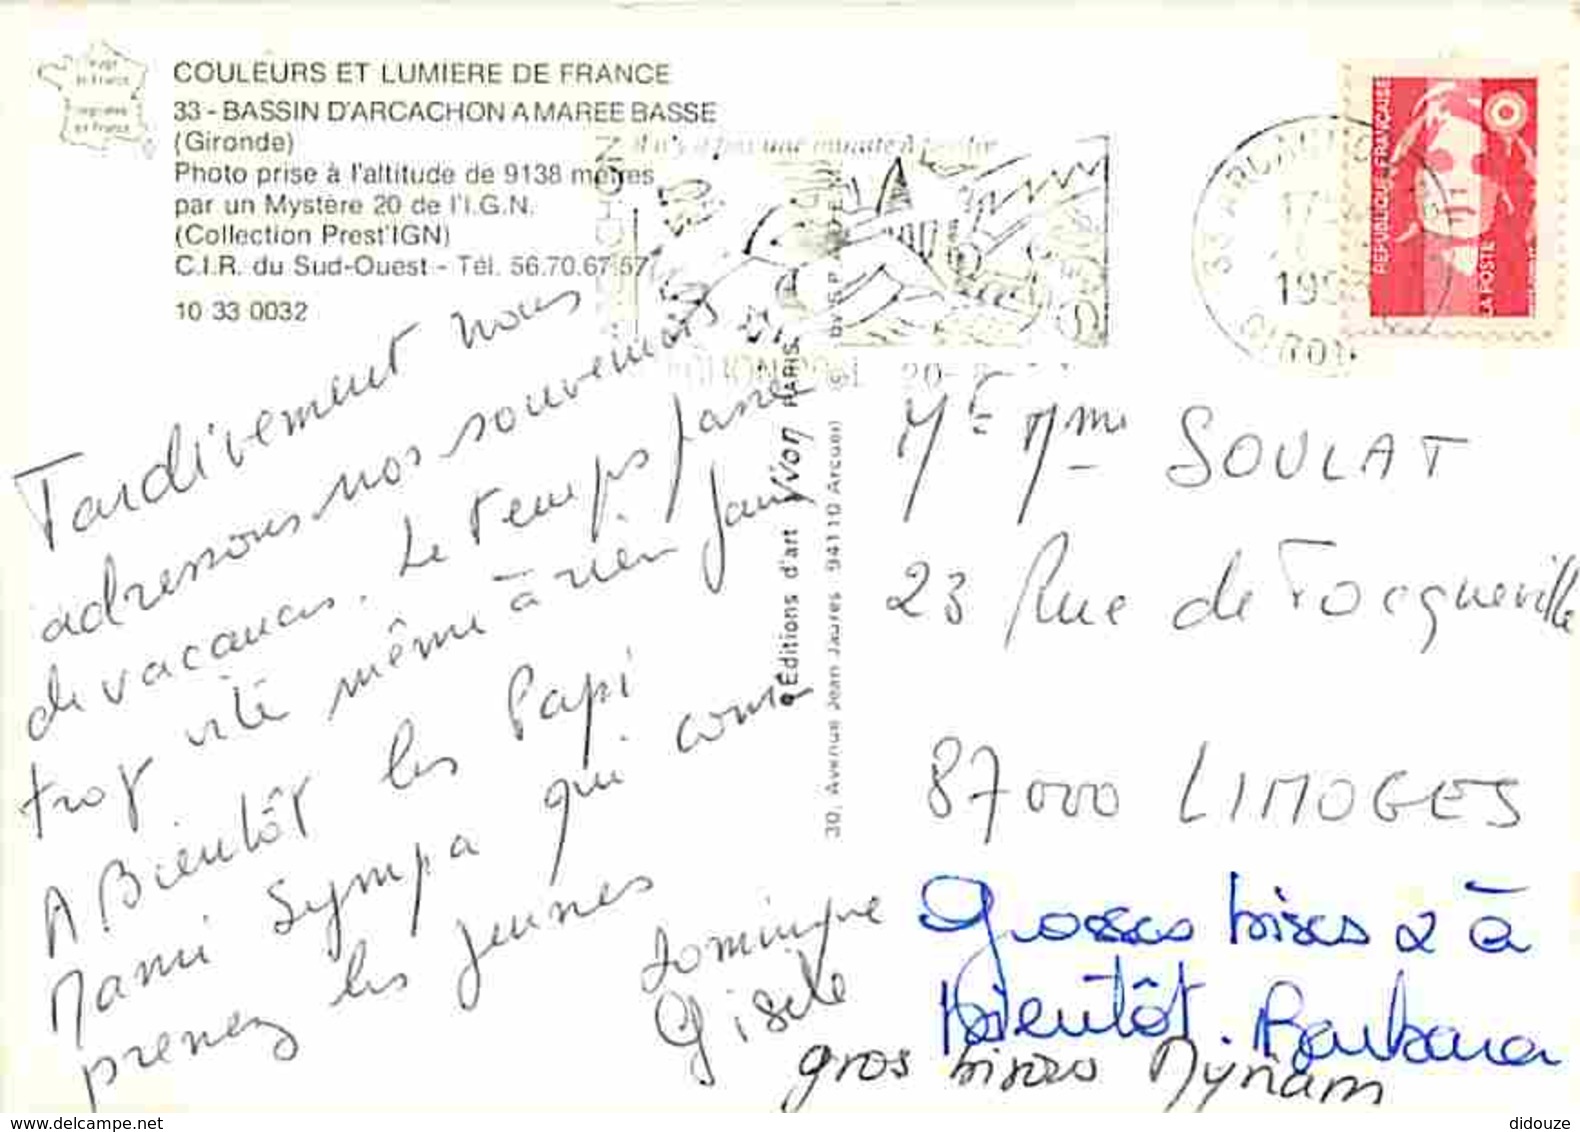 COULEURS ET LUMIERE DE FRANCE
33 - BASSIN D'ARCACHON A MAREE BASSE
(Gironde)
Photo prise à l'altitude de 9138 mètres
par un Mystère 20 de l'I.G.N.
(Collection Prest'IGN)
C.I.R. du Sud-Ouest - Tél. 56.70.67.57
10 33 0032
il n'y a pas une minute à perdre
33 ARCACHON
REPUBLIQUE FRANÇAISE
LA POSTE
Tardivement nous
adressons nos souvenirs
de vacances. Le temps passe
trop vite même à rien faire
A Bientôt les Papi
Mami Sympa qui
prenez les jeunes
Dominique
Gisele
Editions d'art yvon PARIS
30, Avenue Jean Jaurès 94110 Arcueil
Mme SOULAT
23 Rue de Tocqueville
87000 LIMOGES
Grosses bises à
Bientôt. Barbara
gros bisous Myriam
didouze